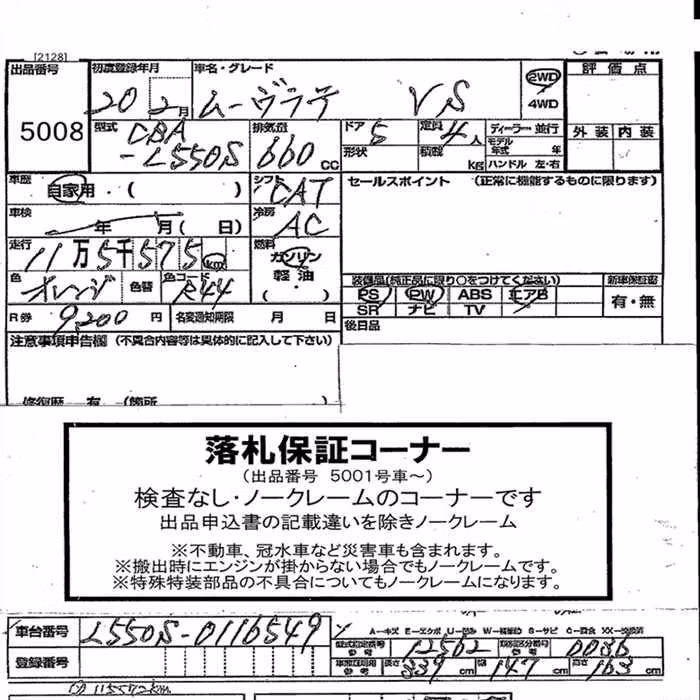 [2128]
出品番号 初度登録年月 車名・グレード 2WD 評価点
5008 20 2月 ムーヴラテ VS 4WD
型式 CBA-L550S 排気量 660cc ドア 5 定員 4人 ディーラー 並行 外装 内装
形状 積載 kg モデル年式 年 ハンドル 左・右
車歴 自家用・( ) シフト CAT セールスポイント (正常に機能するものに限ります)
車検 年 月( 日) 冷房 AC
走行 11万5千575 km 燃料 ガソリン
軽油
(・)
色 オレンジ 色替 色コード R44 装備品(純正品に限り○をつけてください) 新車保証書
PS PW ABS エアB 有・無
SR ナビ TV
R券 9,200円 名変通知期限 月 日 後日品
注意事項申告欄 (不具合内容等は具体的に記入して下さい)
修復歴 有 (箇所 )
落札保証コーナー
(出品番号 5001号車~)
検査なし・ノークレームのコーナーです
出品申込書の記載違いを除きノークレーム
※不動車、冠水車など災害車も含まれます。
※搬出時にエンジンが掛からない場合でもノークレームです。
※特殊特装部品の不具合についてもノークレームになります。
車台番号 L550S-0116549 A-キズ E-エクボ U-凹み W-補修跡 S-サビ C-腐食 XX-交換済
型式指定番号参考 12562 類別区分番号参考 0036
登録番号 長さ 339cm 幅 147cm 高さ 163cm
115572km